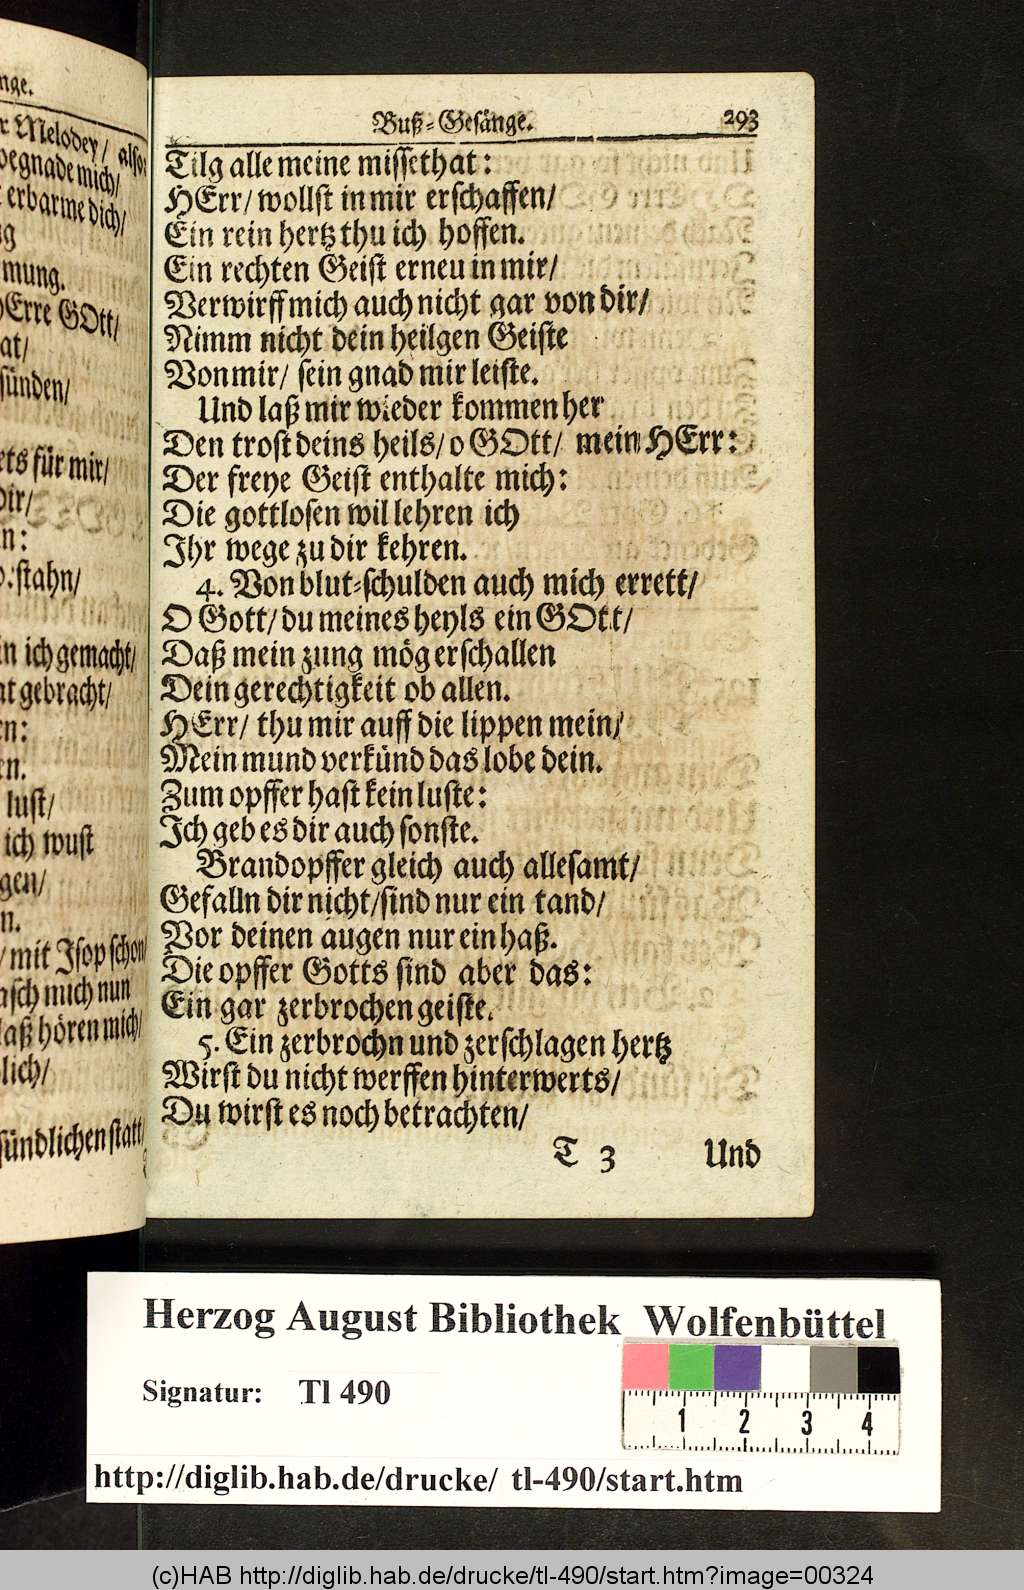 nge.
r Melodey/ also:
begnade mich/
erbarme dich/
mung.
HErre GOtt/
at/
sünden/
ets für mir/
dir/
n:
stahn/
n ich gemacht/
at gebracht/
en:
en.
lust/
ich wust
gen/
n.
/ mit Isop schon/
asch mich nun
laß hören mich/
lich/
sündlichen statt/
Buß-Gesänge. 293
Tilg alle meine missethat:
HErr/ wollst in mir erschaffen/
Ein rein hertz thu ich hoffen.
Ein rechten Geist erneu in mir/
Verwirff mich auch nicht gar von dir/
Nimm nicht dein heilgen Geiste
Von mir/ sein gnad mir leiste.
Und laß mir wieder kommen her
Den trost deins heils/ o GOtt/ mein HErr:
Der freye Geist enthalte mich:
Die gottlosen wil lehren ich
Ihr wege zu dir kehren.
4. Von blut-schulden auch mich errett/
O Gott/ du meines heyls ein GOtt/
Daß mein zung mög erschallen
Dein gerechtigkeit ob allen.
HErr/ thu mir auff die lippen mein/
Mein mund verkünd das lobe dein.
Zum opffer hast kein luste:
Ich geb es dir auch sonste.
Brandopffer gleich auch allesamt/
Gefalln dir nicht/ sind nur ein tand/
Vor deinen augen nur ein haß.
Die opffer Gotts sind aber das:
Ein gar zerbrochen geiste.
5. Ein zerbrochn und zerschlagen hertz
Wirst du nicht werffen hinterwerts/
Du wirst es noch betrachten/
T 3 Und
Herzog August Bibliothek Wolfenbüttel
Signatur: Tl 490
1 2 3 4
http://diglib.hab.de/drucke/ tl-490/start.htm
(c)HAB http://diglib.hab.de/drucke/tl-490/start.htm?image=00324